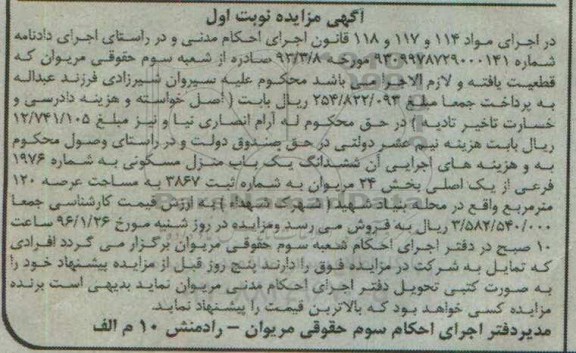 آگهی مزایده نوبت اول
در اجرای مواد ۱۱۴ و ۱۱۷ و ۱۱۸ قانون اجرای احکام مدنی و در راستای اجرای دادنامه
شماره ۹۳۰۹۹۷۸۷۲۹۰۰۰۱۴۱ مورخه ۹۳/۳/۸ صادره از شعبه سوم حقوقی مریوان که
قطعیت یافته و لازم الاجرا می باشد محکوم علیه سیروان شیرزادی فرزند عبداله
به پرداخت جمعا مبلغ ۲۵۴/۸۲۲/۰۹۳ ریال بابت ( اصل خواسته و هزینه دادرسی و
خسارت تاخیر تادیه ) در حق محکوم له آرام انصاری نیا و نیز مبلغ ۱۲/۷۴۱/۱۰۵
ریال بابت هزینه نیم عشر دولتی در حق صندوق دولت و در راستای وصول محکوم
به و هزینه های اجرایی آن ششدانگ یک باب منزل مسکونی به شماره ۱۹۷۶
فرعی از یک اصلی بخش ۲۴ مریوان به شماره ثبت ۳۸۶۷ به مساحت عرصه ۱۲۰
مترمربع واقع در محله بنیاد شهید ( شهرک شهدا ) به ارزش قیمت کارشناسی جمعا
۳/۵۸۲/۵۴۰/۰۰۰ ریال به فروش می رسد ومزایده در روز شنبه مورخ ۹۶/۱/۲۶ ساعت
۱۰ صبح در دفتر اجرای احکام شعبه سوم حقوقی مریوان برگزار می گردد افرادی
که تمایل به شرکت در مزایده فوق را دارند پنج روز قبل از مزایده پیشنهاد خود را
به صورت کتبی تحویل دفتر اجرای احکام مدنی مریوان نماید بدیهی است برنده
مزایده کسی خواهد بود که بالاترین قیمت را پیشنهاد نماید.
مدیردفتر اجرای احکام سوم حقوقی مریوان – رادمنش ۱۰ م الف